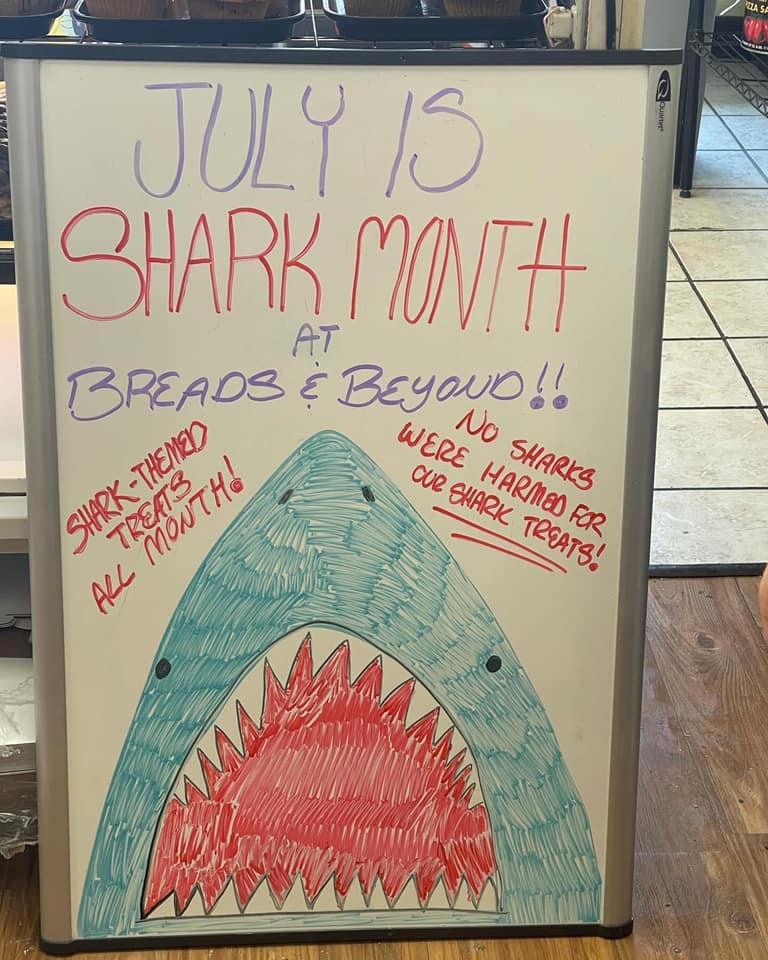 JULY IS
SHARK MONTH
AT
BREADS & BEYOND!!
SHARK-THEMED
TREATS
ALL MONTH!
NO SHARKS
WERE HARMED FOR
OUR SHARK TREATS!
Quartet